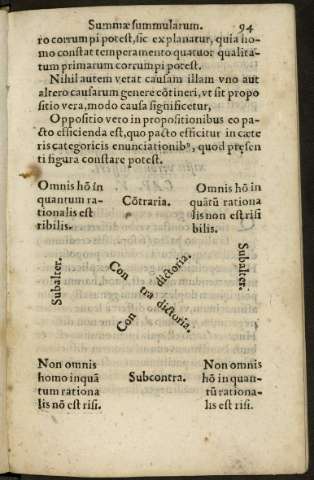 Summæ summularum. 94
ro corrumpi potest, sic explanatur, quia ho-
mo constat temperamento quatuor qualita-
tum primarum corrumpi potest.
Nihil autem vetat causam illam vno aut
altero causarum genere cõtineri, vt sit propo
sitio vera, modo causa significetur,
Oppositio vero in propositionibus eo pa-
cto efficienda est, quo pacto efficitur in cæte
ris categoricis enunciationibꝰ, quod præsen
ti figura constare potest.
Omnis hõ in
quantum ra-
tionalis est
ribilis.
Cõtraria.
Omnis hõ in
quãtũ rationa
lis non est risi
bilis.
Subalter.
Contradictoria.
Contradictoria.
Subalter.
Non omnis
homo inquã
tum rationa
lis nõ est risi.
Subcontra.
Non omnis
hõ in quan-
tũ rationa-
lis est risi.